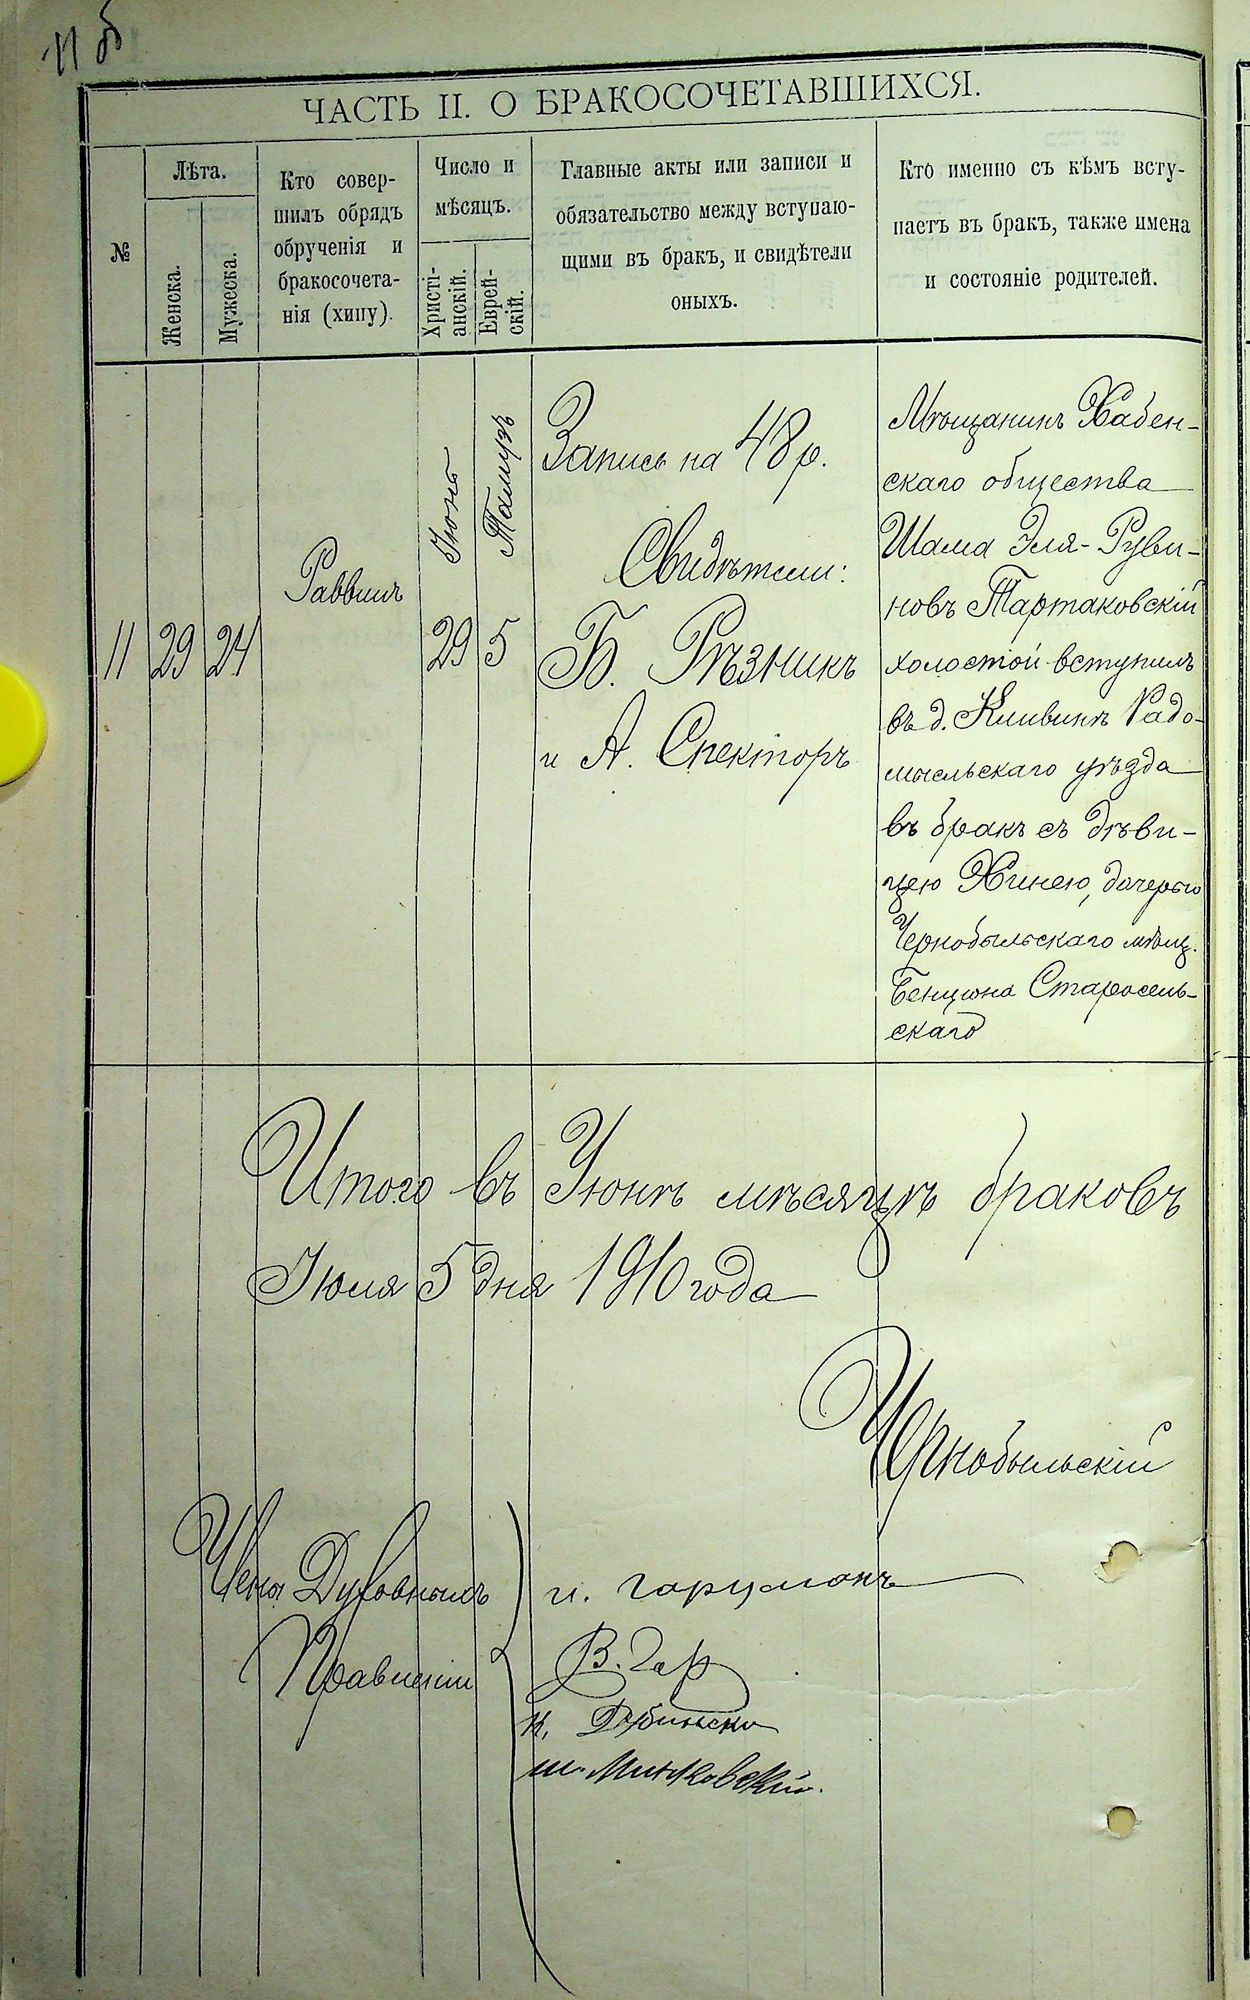 11 об
ЧАСТЬ II. О БРАКОСОЧЕТАВШИХСЯ.
№
Лѣта.
Женска.
Мужеска.
Кто совер-
шилъ обрядъ
обрученія и
бракосочета-
нія (хипу).
Число и
мѣсяцъ.
Христі-
анскій.
Еврей-
скій.
Главные акты или записи и
обязательство между вступаю-
щими въ бракъ, и свидѣтели
оныхъ.
Кто именно съ кѣмъ всту-
паетъ въ бракъ, также имена
и состояніе родителей.
11
29
24
Раввинъ
Іюнь
29
Тамузъ
5
Запись на 48 р.
Свидѣтели:
Б. Рѣзникъ
и А. Спекторъ
Мѣщанинъ Хабен-
скаго общества
Шама Эля-Руви-
новъ Тартаковскій
холостой вступилъ
въ д. Кливинѣ Радо-
мысльскаго уѣзда
въ бракъ съ дѣви-
цею Хинею, дочерью
Чернобыльскаго мѣщ.
Бенціона Старосель-
скаго
Итого въ Іюнѣ мѣсяцѣ браковъ
Іюля 5 дня 1910 года
Чернобыльскій
Члены Духовнаго
Правленія
В.
ш. Минковскій.